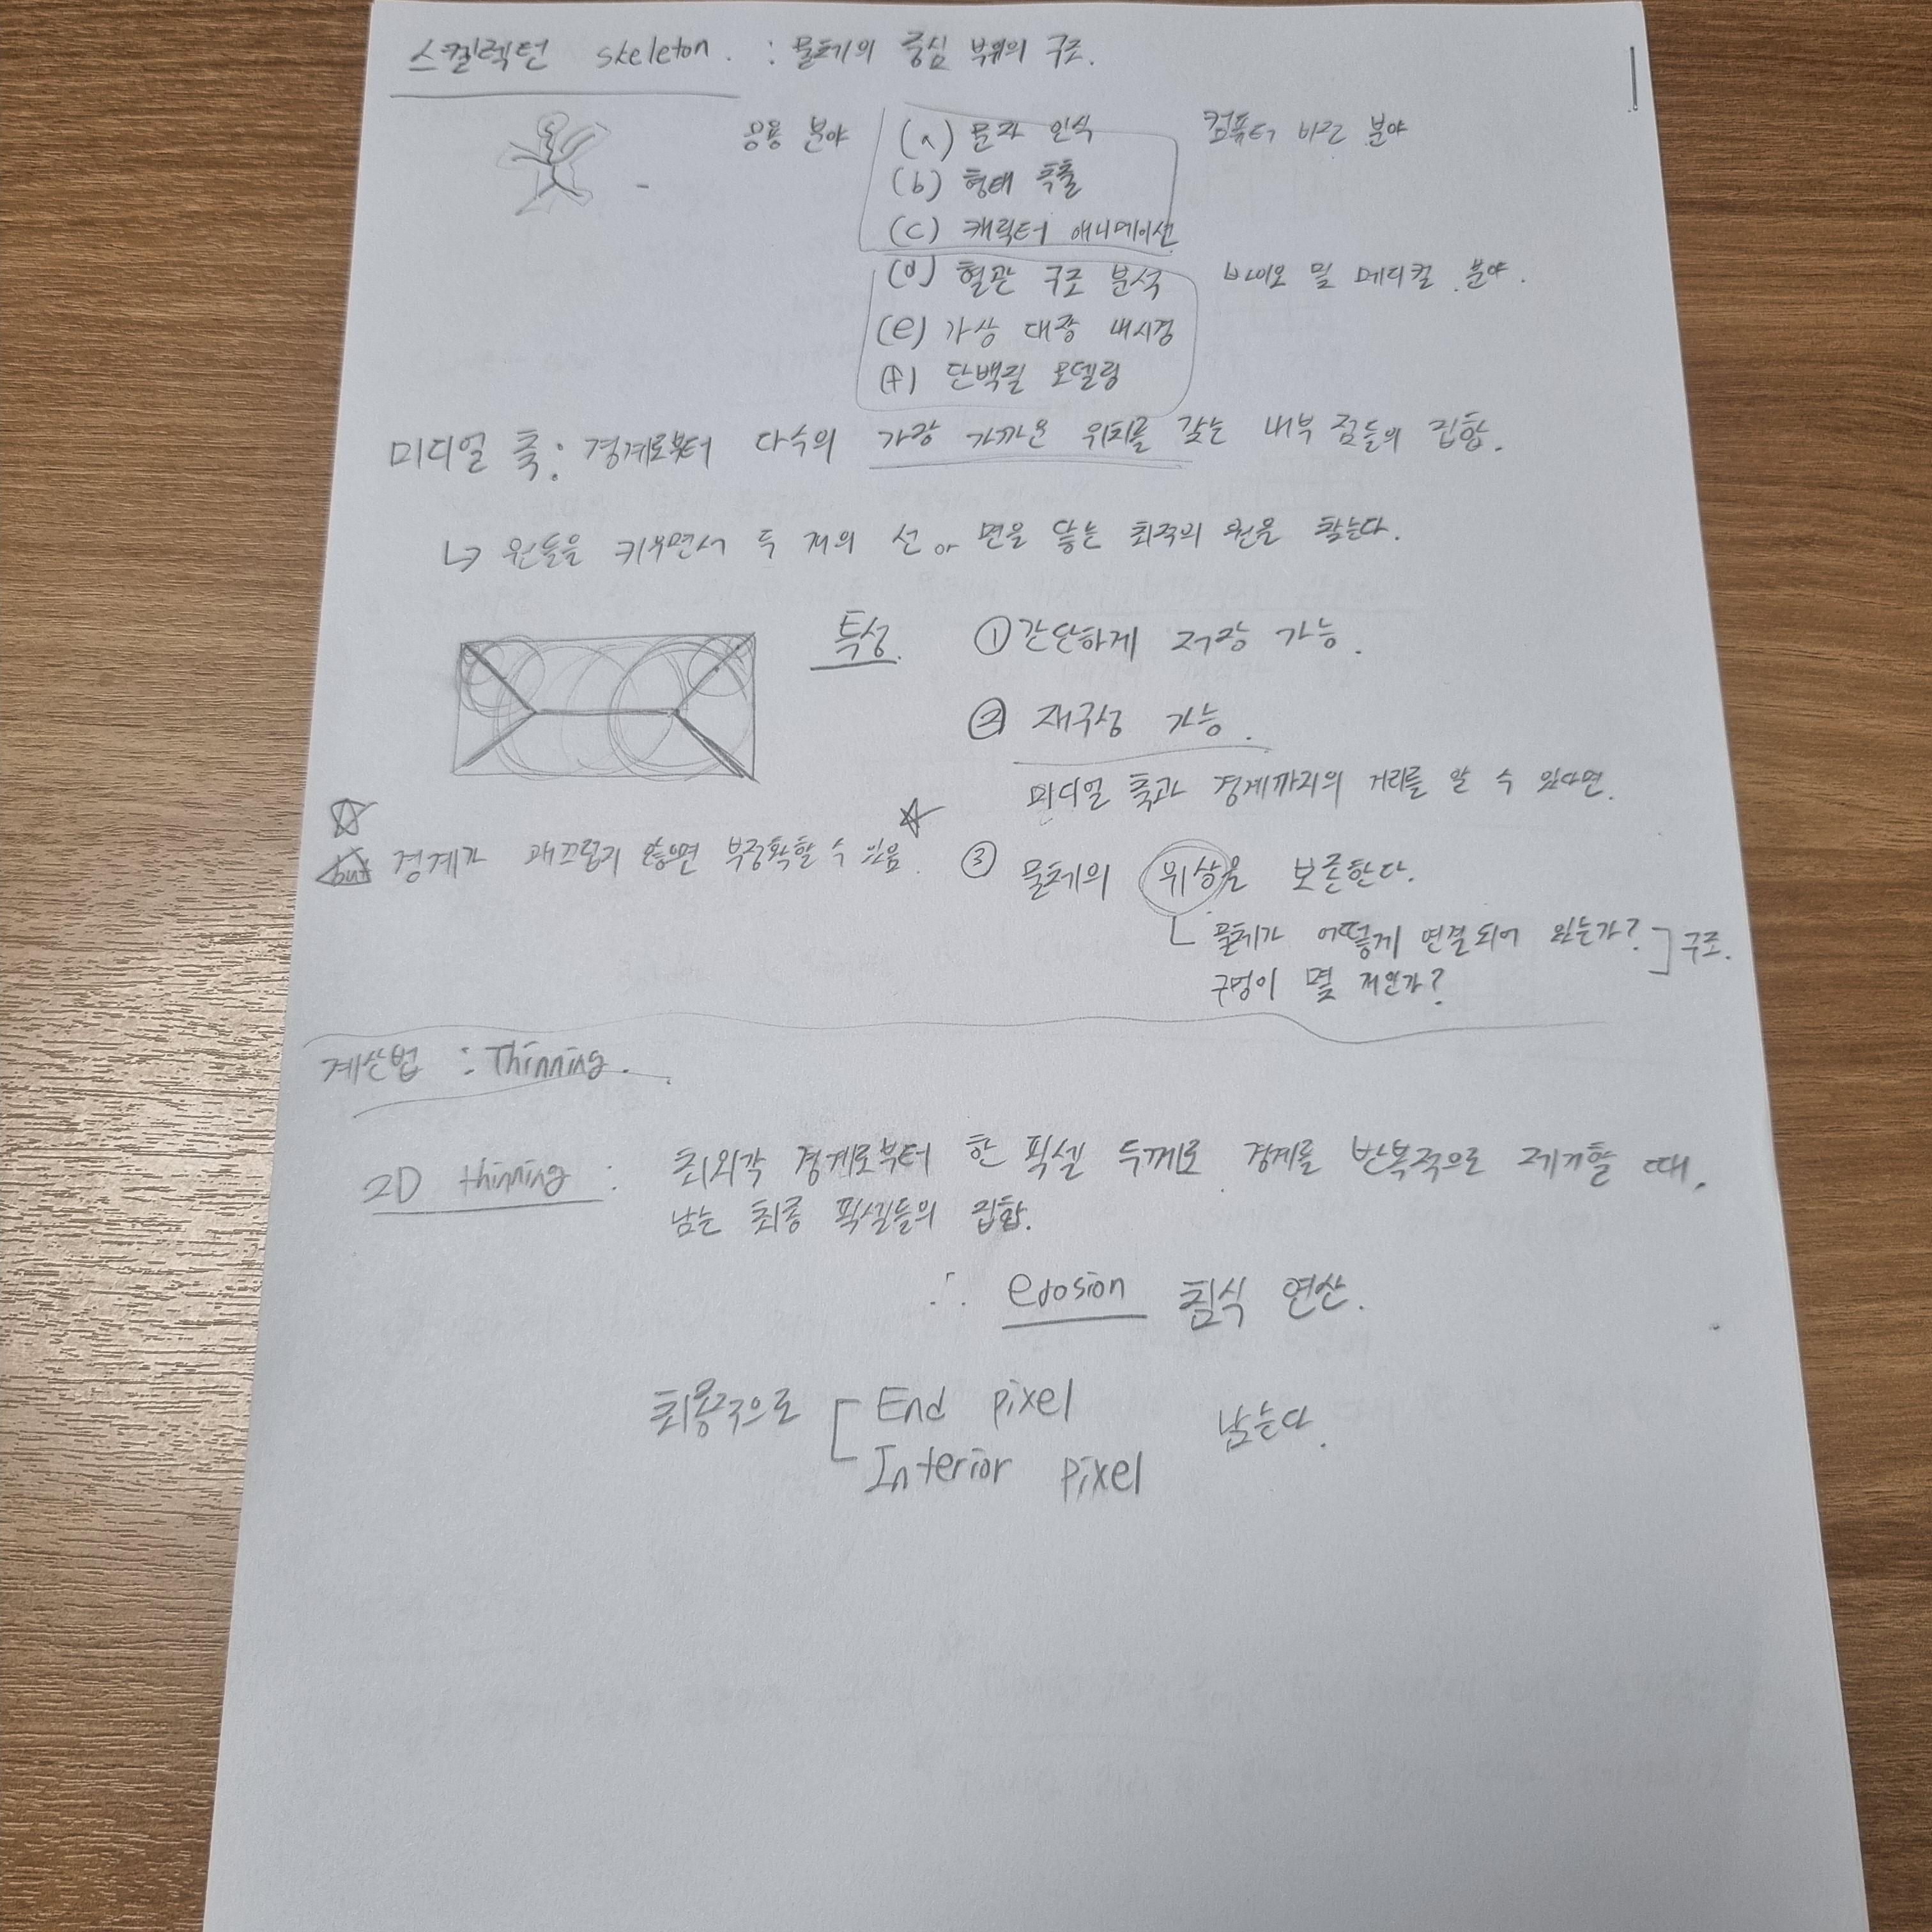 스켈렉턴 skeleton. : 물체의 중심 부위의 구조.
응용 분야 (a) 문자 인식 컴퓨터 비전 분야
(b) 형태 추출
(c) 캐릭터 애니메이션
(d) 혈관 구조 분석 바이오 및 메디컬 분야.
(e) 가상 대장 내시경
(f) 단백질 모델링
미디얼 축: 경계로부터 다수의 가장 가까운 위치를 갖는 내부 점들의 집합.
↳ 원들을 키우면서 두 개의 선 or 면을 닿는 최적의 원을 찾는다.
특성. ① 간단하게 저장 가능.
② 재구성 가능.
미디얼 축과 경계까지의 거리를 알 수 있다면.
☆ but 경계가 매끄럽지 않으면 부정확할 수 있음. ☆
③ 물체의 위상을 보존한다.
물체가 어떻게 연결되어 있는가? ] 구조.
구멍이 몇 개인가?
계산법 : Thinning.
2D thinning : 최외각 경계로부터 한 픽셀 두께로 경계를 반복적으로 제거할 때,
남는 최종 픽셀들의 집합.
∴ erosion 침식 연산.
최종적으로 [ End pixel 남는다.
Interior pixel